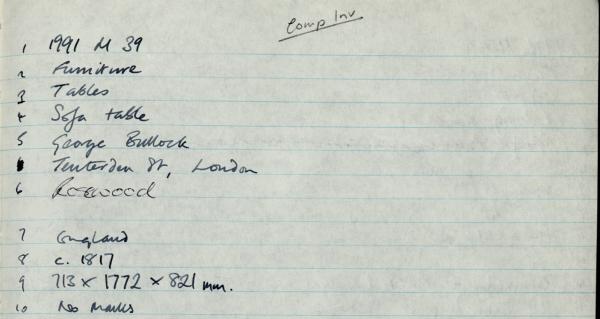 Comp Inv
1 1991 M 39
2 Furniture
3 Tables
4 Sofa table
5 George Bullock
Tenterden St, London
6 Rosewood
7 England
8 c. 1817
9 713 x 1772 x 821 mm.
10 No marks